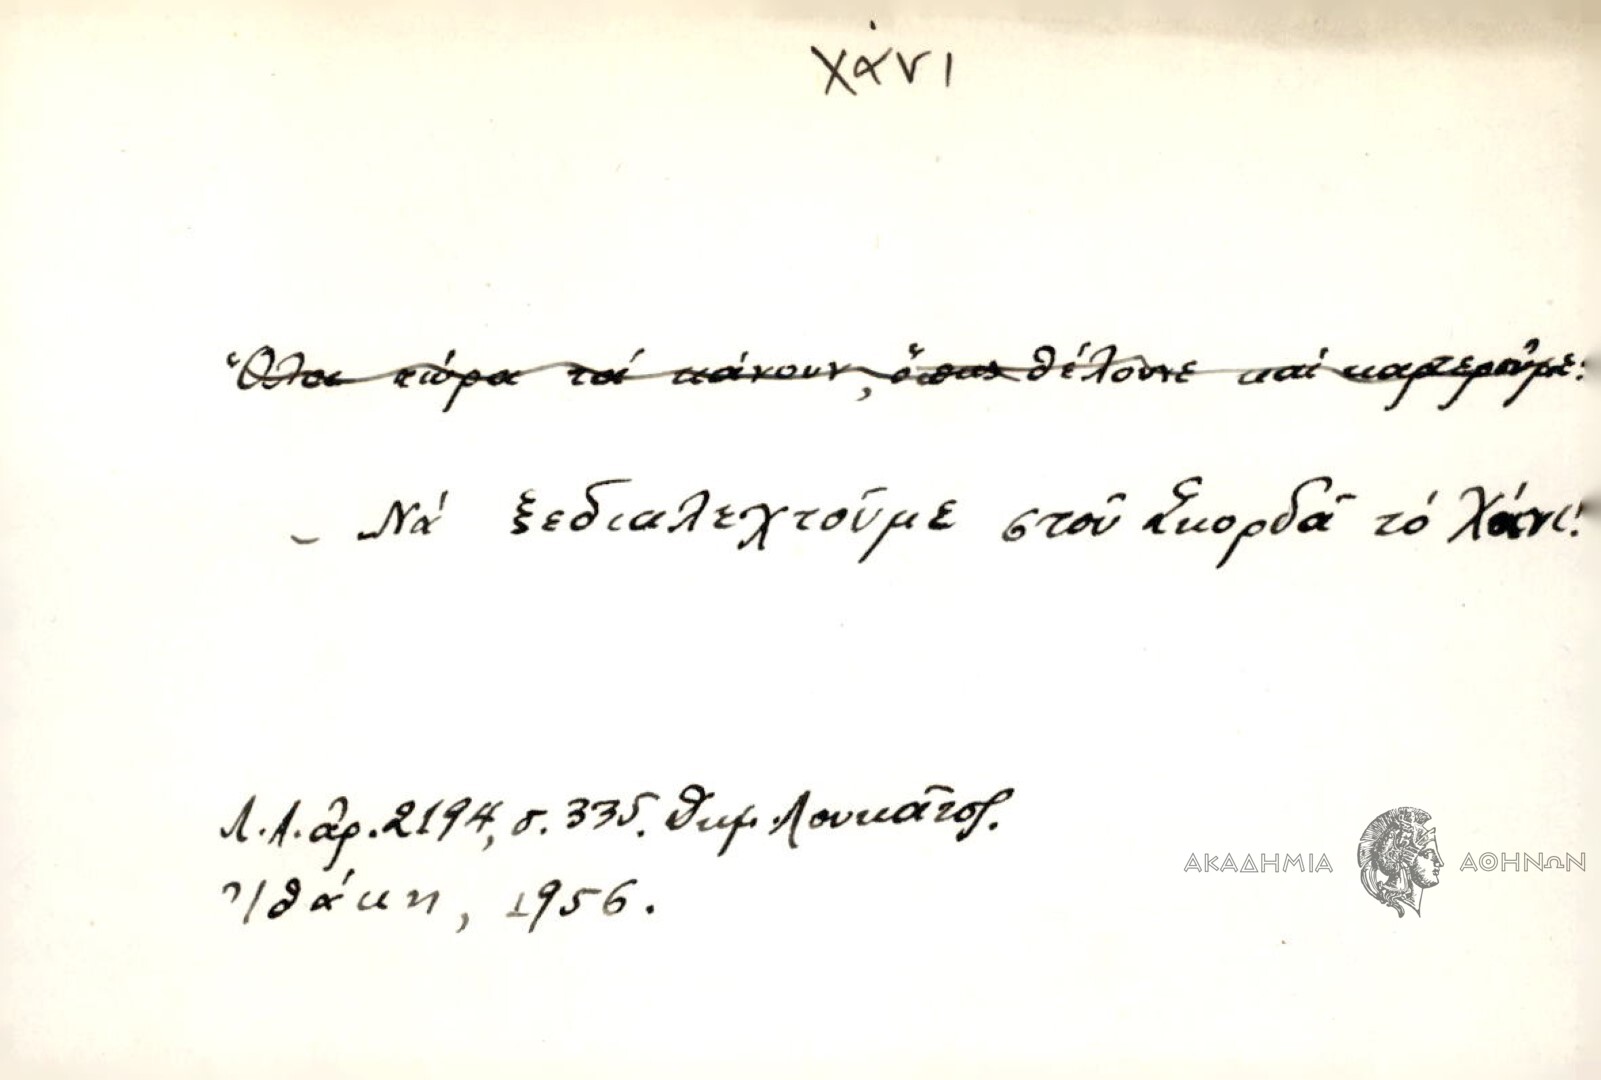 χάνι
Ὅλοι τώρα τά κάνουν, ὅπως θέλουνε καί καρτεροῦμε:
– Νά ξεδιαλεχτοῦμε στοῦ Σκορδᾶ τό Χάνι!
Λ.Α. ἀρ. 2194, σ. 335. Δημ. Λουκᾶτος.
Ἰθάκη, 1956.
ΑΚΑΔΗΜΙΑ ΑΘΗΝΩΝ